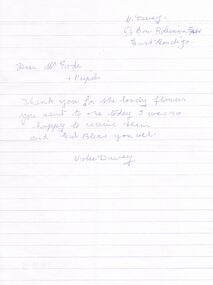 V. Davey
63 Bow Robinson
East Bendigo.
Dear Mr Eade
+ Pupils
Thank you for the lovely flowers
you sent to me today I was so
happy to receive them
and God Bless you all
Violet Davey